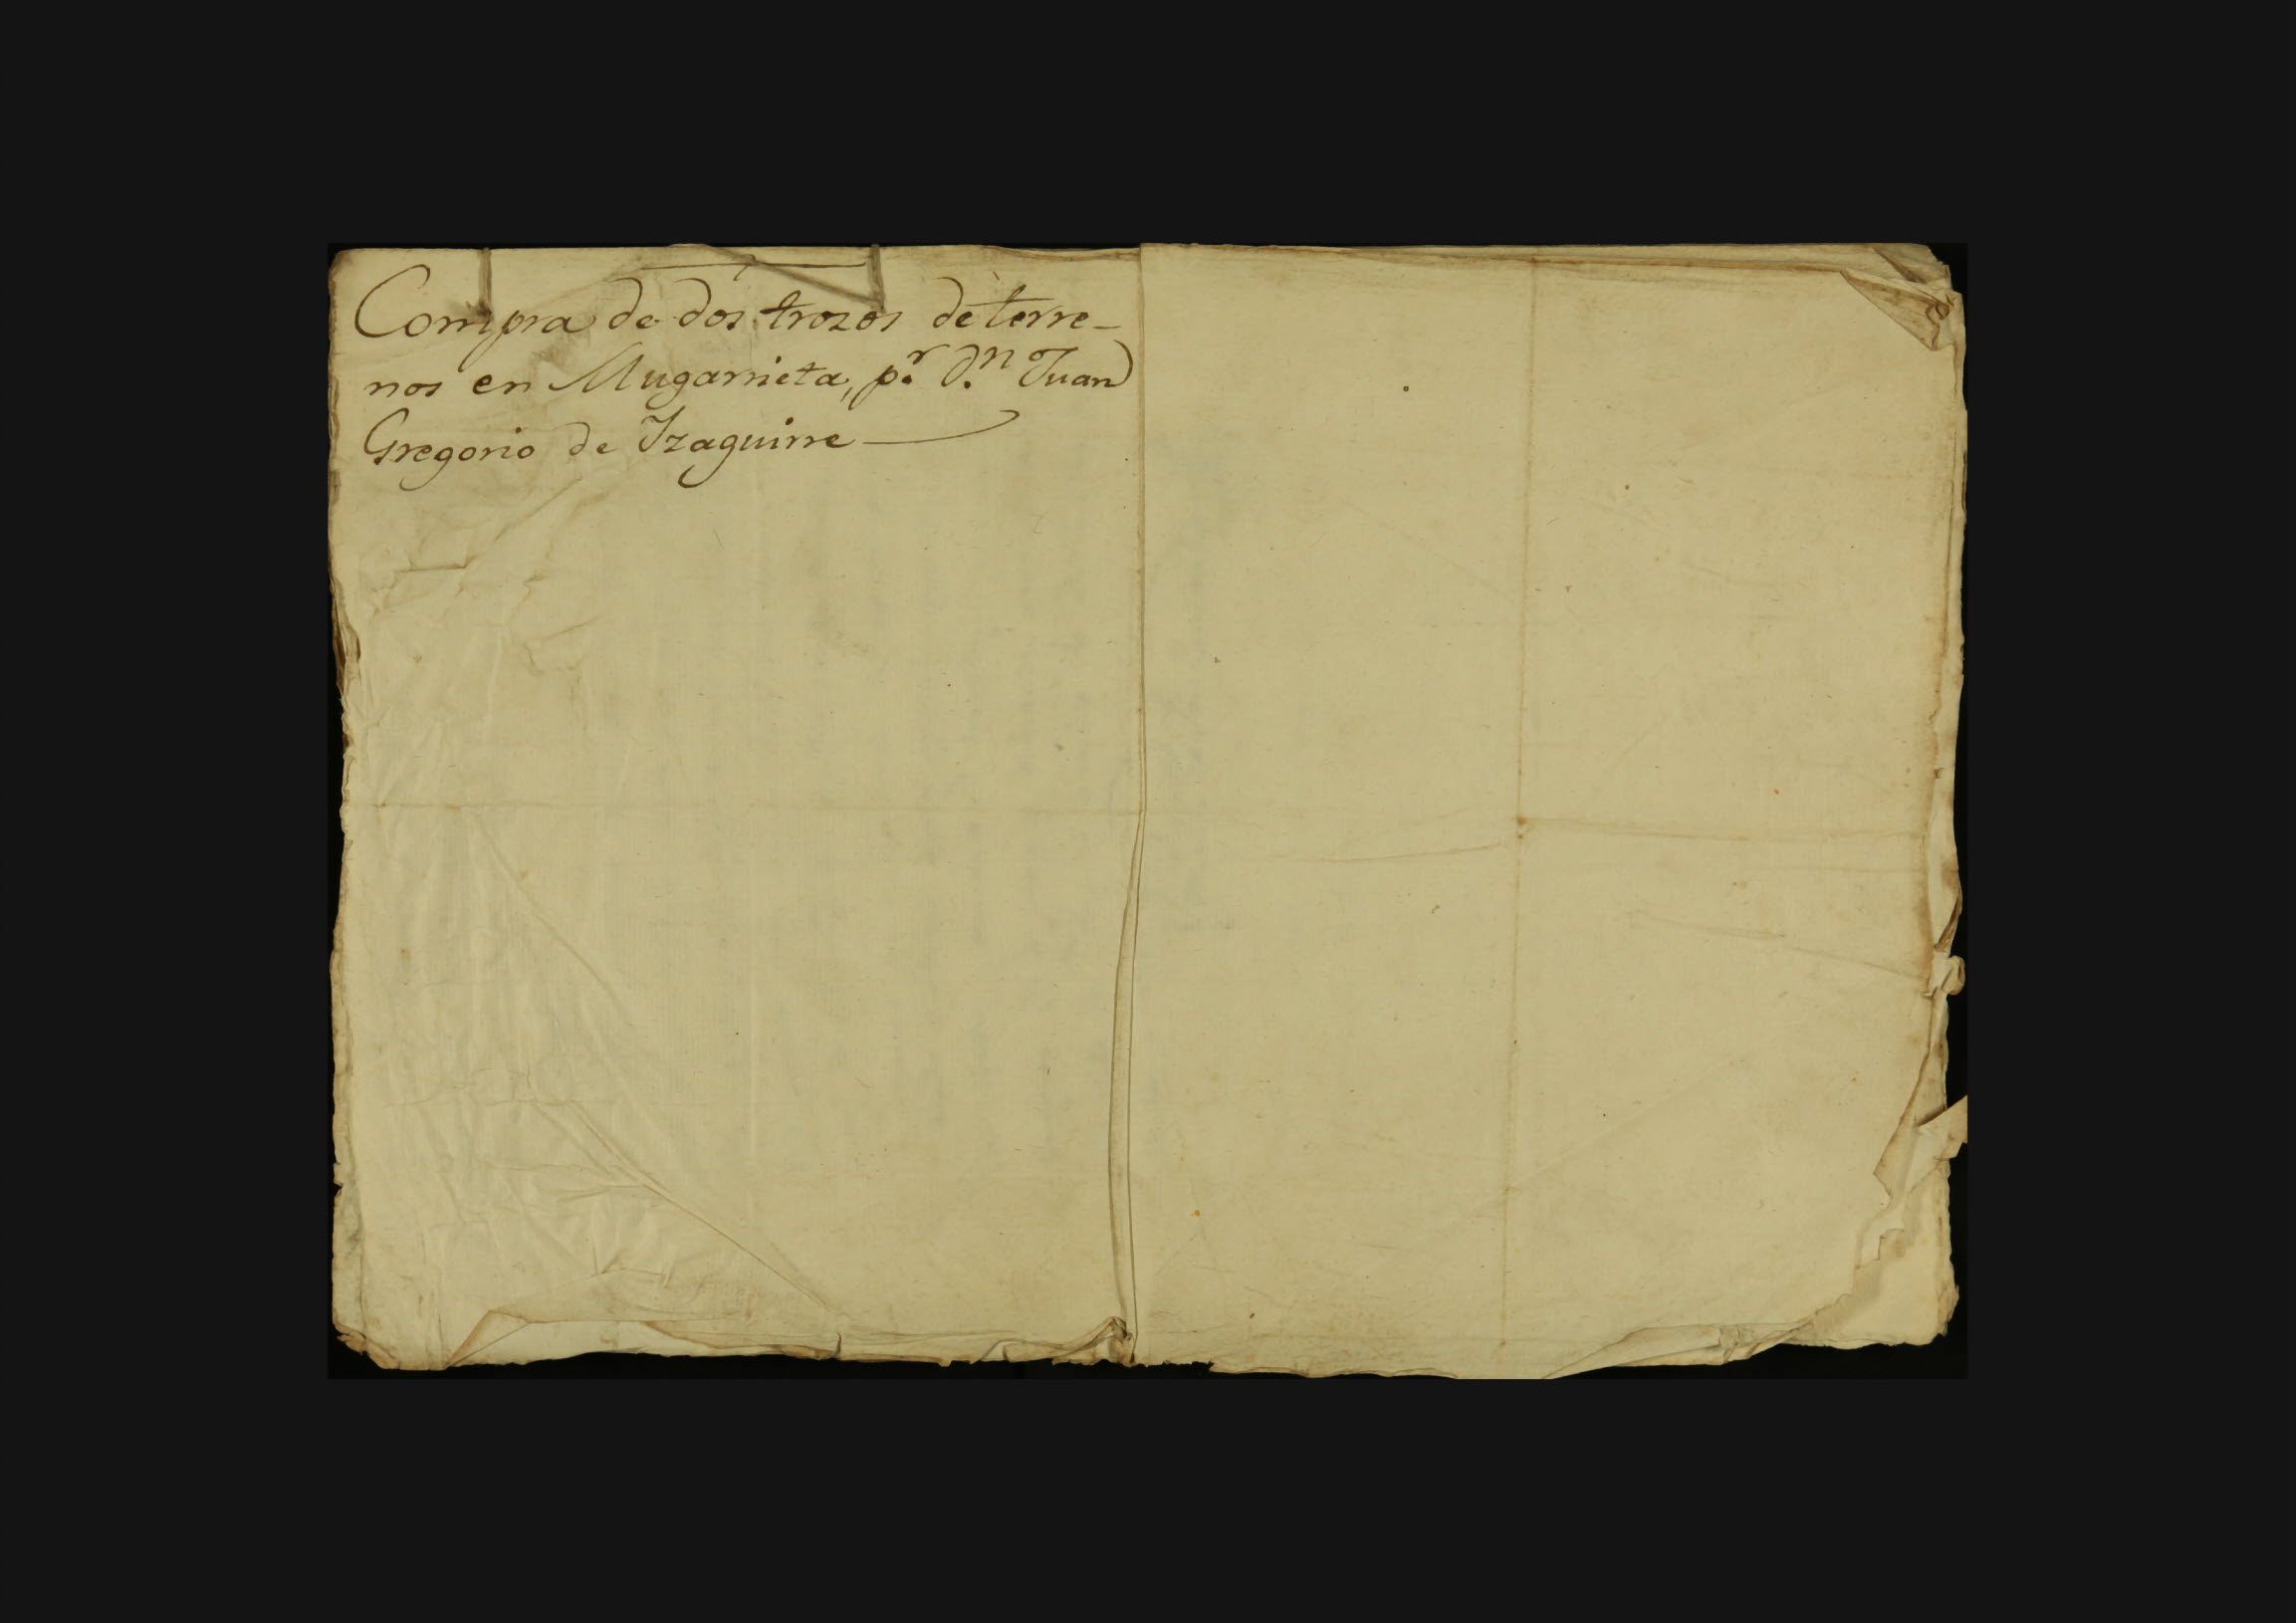 Compra de dos trozos de terre-
nos en Mugarrieta, p.r D.n Juan
Gregorio de Yzaguirre